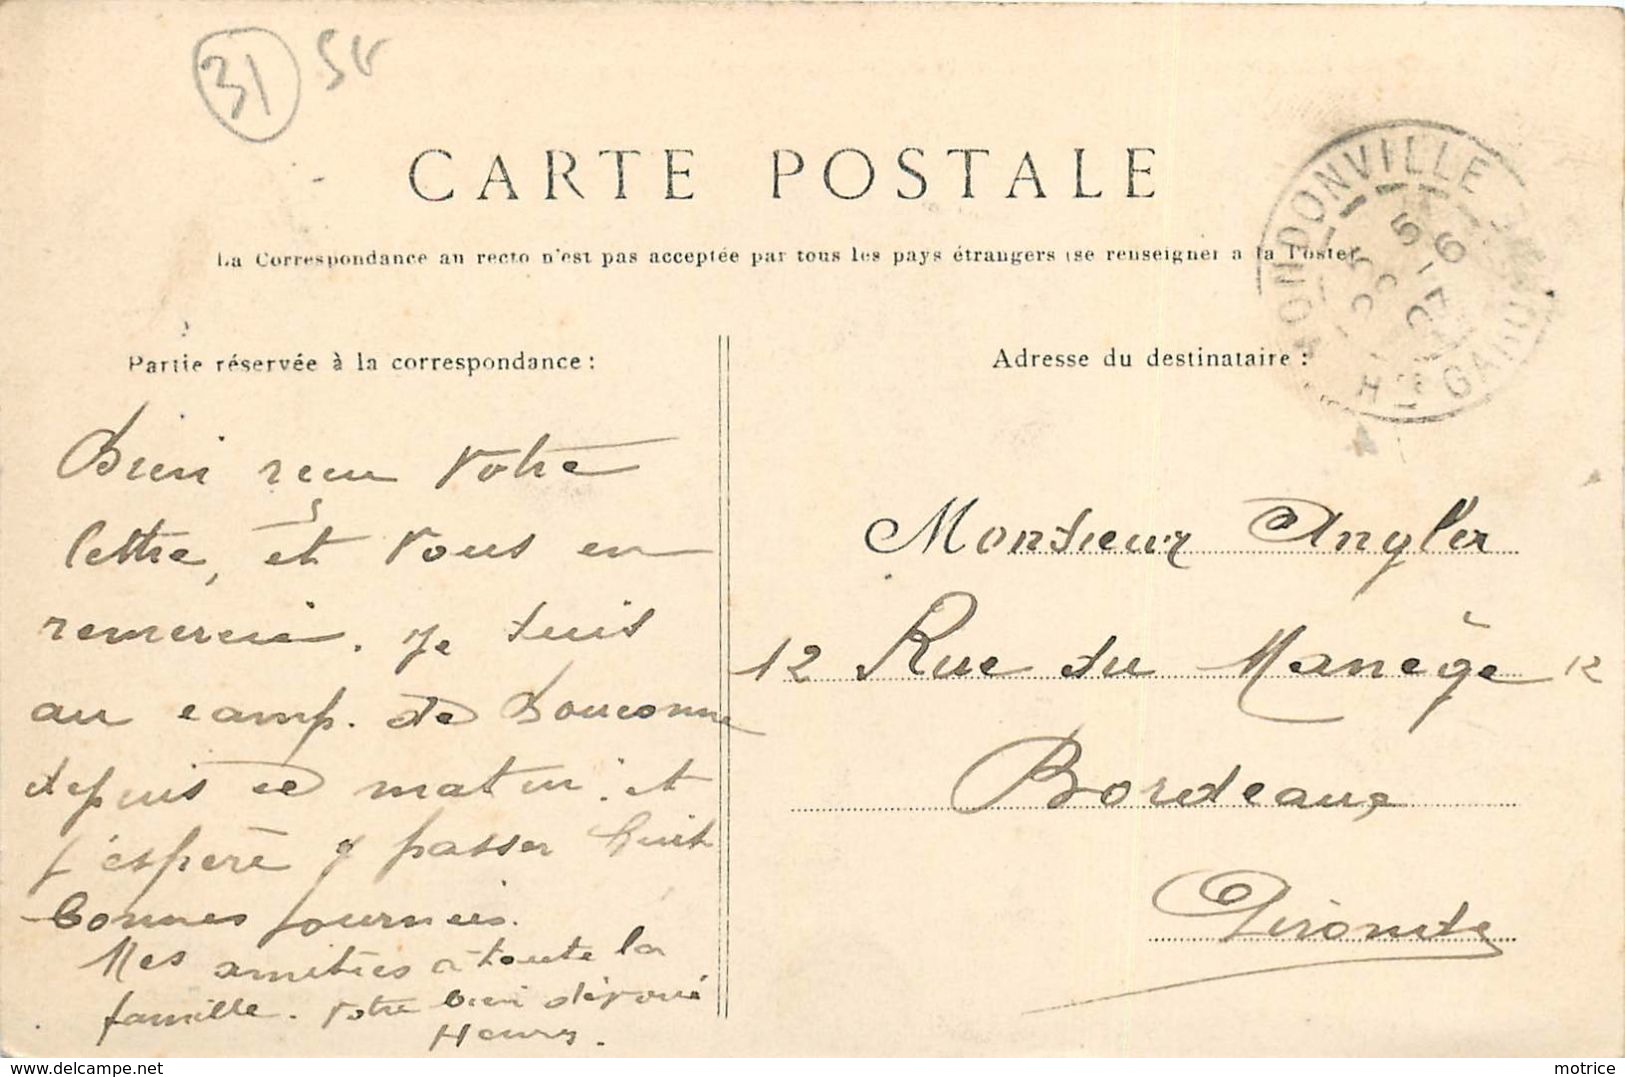 31 SV
CARTE POSTALE
La Correspondance au recto n'est pas acceptée par tous les pays étrangers (se renseigner a la Poste)
MONDONVILLE
Hte GARONNE
Partie réservée à la correspondance :
Bien reçu votre
lettre, et vous en
remercie. Je suis
au camp. de Bouconne
depuis ce matin. et
j'espère y passer huit
bonnes journées.
Mes amitiés à toute la
famille. Votre bien dévoué
Henry.
Adresse du destinataire :
Monsieur Angler
12 Rue du Manège 12
Bordeaux
Gironde
motrice